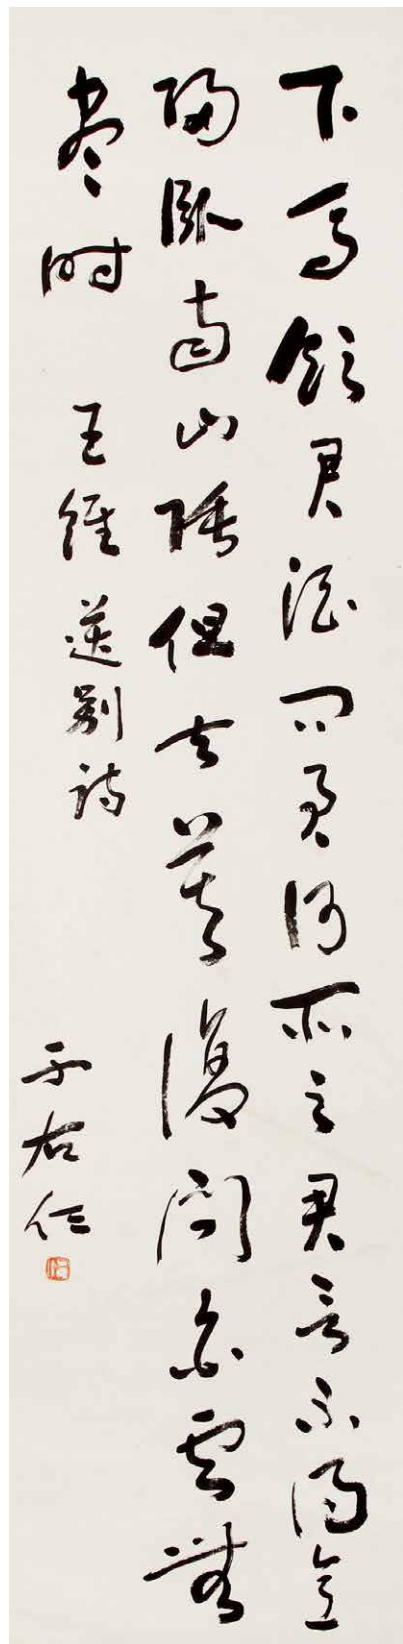 下馬飲君酒問君何所之君言不得意
歸臥南山陲但去莫復問白雲無
盡時 王維送別詩
于右任